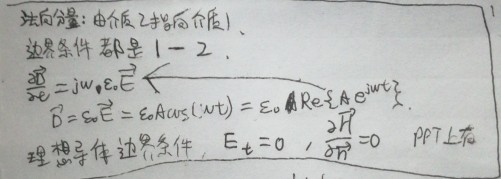 法向分量:由介质2指向介质1、
边界条件都是1-2.
∂D⃗/∂t=jω,ε₀E⃗
D⃗=ε₀E⃗=ε₀Acos(ωt)=ε₀ARe{Ae^{jωt}}.
理想导体边界条件, E_t=0 , ∂H⃗/∂n⃗=0 PPT上有